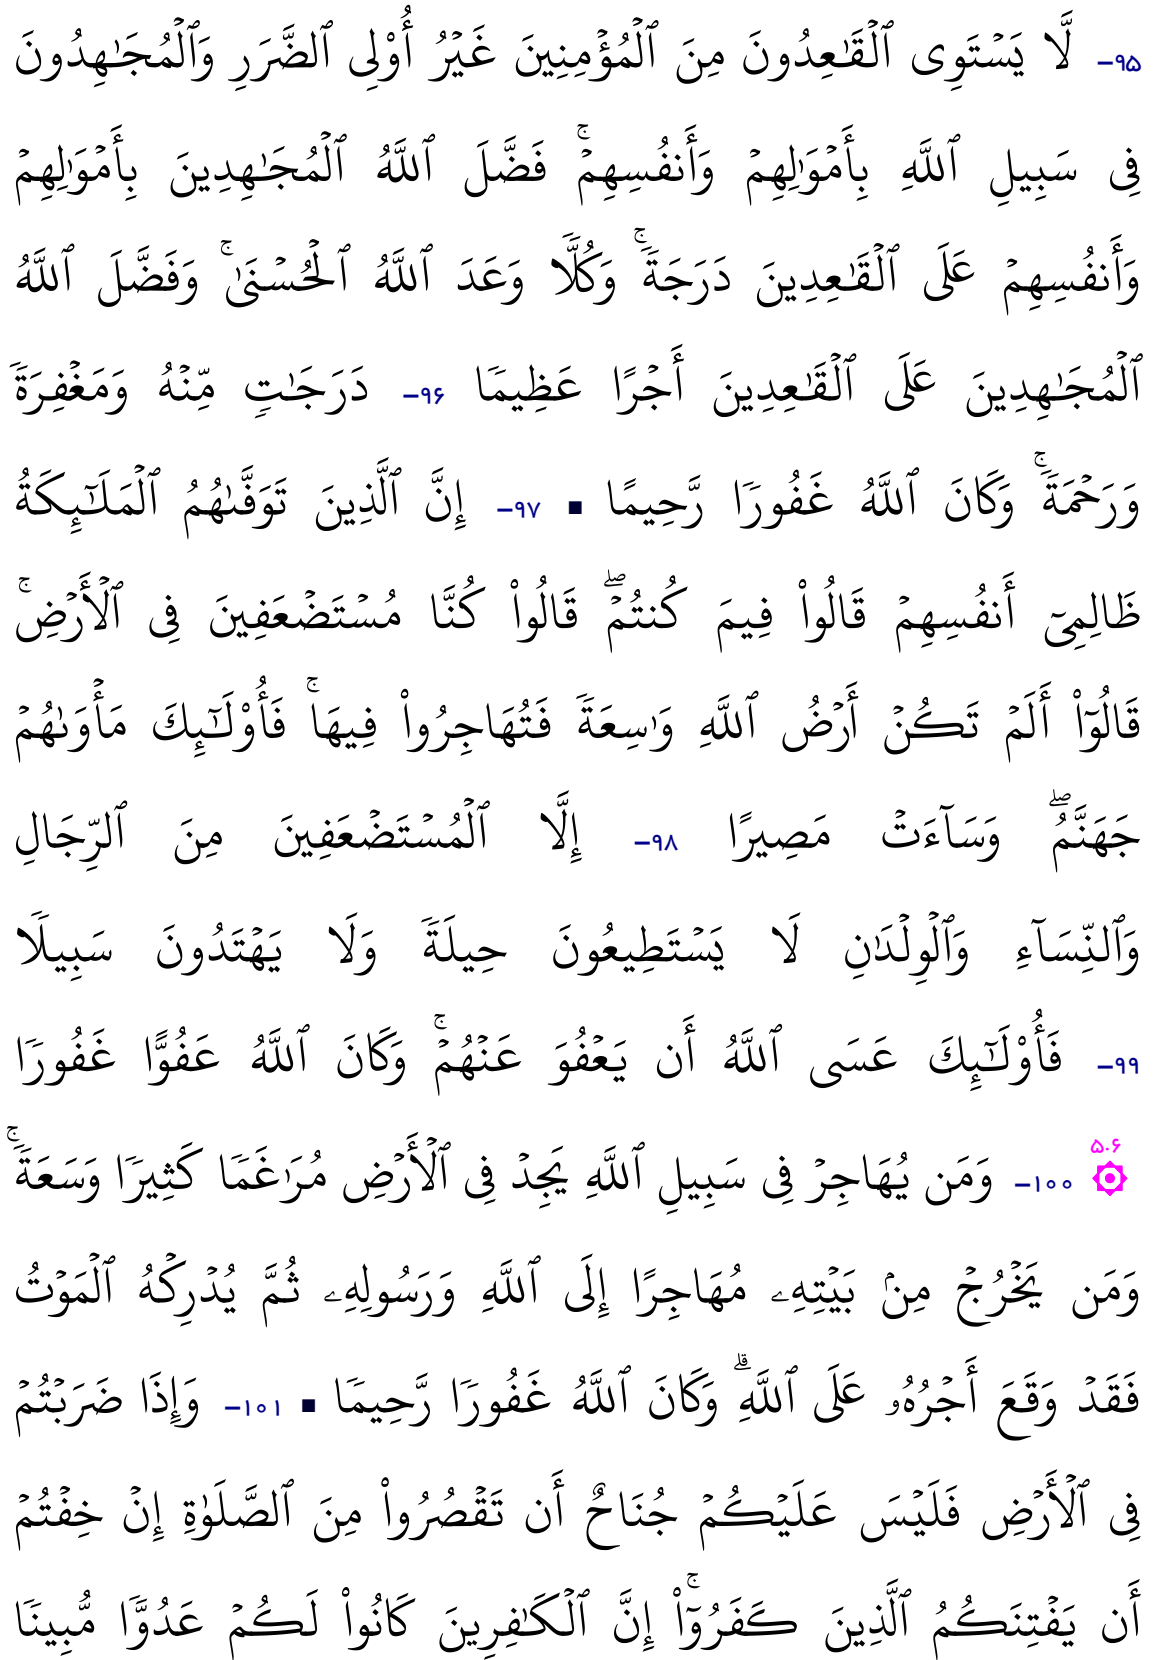 ۹۵- لَّا يَسۡتَوِى ٱلۡقَٰعِدُونَ مِنَ ٱلۡمُؤۡمِنِينَ غَيۡرُ أُوْلِى ٱلضَّرَرِ وَٱلۡمُجَٰهِدُونَ
فِى سَبِيلِ ٱللَّهِ بِأَمۡوَٰلِهِمۡ وَأَنفُسِهِمۡۚ فَضَّلَ ٱللَّهُ ٱلۡمُجَٰهِدِينَ بِأَمۡوَٰلِهِمۡ
وَأَنفُسِهِمۡ عَلَى ٱلۡقَٰعِدِينَ دَرَجَةٗۚ وَكُلّٗا وَعَدَ ٱللَّهُ ٱلۡحُسۡنَىٰۚ وَفَضَّلَ ٱللَّهُ
ٱلۡمُجَٰهِدِينَ عَلَى ٱلۡقَٰعِدِينَ أَجۡرًا عَظِيمٗا ۹۶- دَرَجَٰتٖ مِّنۡهُ وَمَغۡفِرَةٗ
وَرَحۡمَةٗۚ وَكَانَ ٱللَّهُ غَفُورٗا رَّحِيمًا ■ ۹۷- إِنَّ ٱلَّذِينَ تَوَفَّىٰهُمُ ٱلۡمَلَٰٓئِكَةُ
ظَالِمِىٓ أَنفُسِهِمۡ قَالُواْ فِيمَ كُنتُمۡۖ قَالُواْ كُنَّا مُسۡتَضۡعَفِينَ فِى ٱلۡأَرۡضِۚ
قَالُوٓاْ أَلَمۡ تَكُنۡ أَرۡضُ ٱللَّهِ وَٰسِعَةٗ فَتُهَاجِرُواْ فِيهَاۚ فَأُوْلَٰٓئِكَ مَأۡوَىٰهُمۡ
جَهَنَّمُۖ وَسَآءَتۡ مَصِيرًا ۹۸- إِلَّا ٱلۡمُسۡتَضۡعَفِينَ مِنَ ٱلرِّجَالِ
وَٱلنِّسَآءِ وَٱلۡوِلۡدَٰنِ لَا يَسۡتَطِيعُونَ حِيلَةٗ وَلَا يَهۡتَدُونَ سَبِيلٗا
۹۹- فَأُوْلَٰٓئِكَ عَسَى ٱللَّهُ أَن يَعۡفُوَ عَنۡهُمۡۚ وَكَانَ ٱللَّهُ عَفُوًّا غَفُورٗا
۵.۶ ۞ ۱۰۰- وَمَن يُهَاجِرۡ فِى سَبِيلِ ٱللَّهِ يَجِدۡ فِى ٱلۡأَرۡضِ مُرَٰغَمٗا كَثِيرٗا وَسَعَةٗۚ
وَمَن يَخۡرُجۡ مِنۢ بَيۡتِهِۦ مُهَاجِرًا إِلَى ٱللَّهِ وَرَسُولِهِۦ ثُمَّ يُدۡرِكۡهُ ٱلۡمَوۡتُ
فَقَدۡ وَقَعَ أَجۡرُهُۥ عَلَى ٱللَّهِۗ وَكَانَ ٱللَّهُ غَفُورٗا رَّحِيمٗا ■ ۱۰۱- وَإِذَا ضَرَبۡتُمۡ
فِى ٱلۡأَرۡضِ فَلَيۡسَ عَلَيۡكُمۡ جُنَاحٌ أَن تَقۡصُرُواْ مِنَ ٱلصَّلَوٰةِ إِنۡ خِفۡتُمۡ
أَن يَفۡتِنَكُمُ ٱلَّذِينَ كَفَرُوٓاْۚ إِنَّ ٱلۡكَٰفِرِينَ كَانُواْ لَكُمۡ عَدُوّٗا مُّبِينٗا